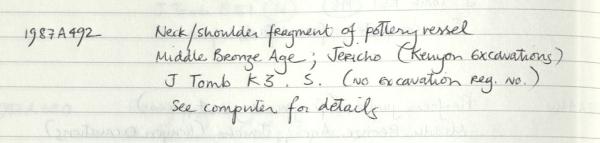 1987A492 Neck/shoulder fragment of pottery vessel
Middle Bronze Age; Jericho (Kenyon Excavations)
J Tomb K3. S. (no excavation reg. no.)
See computer for details